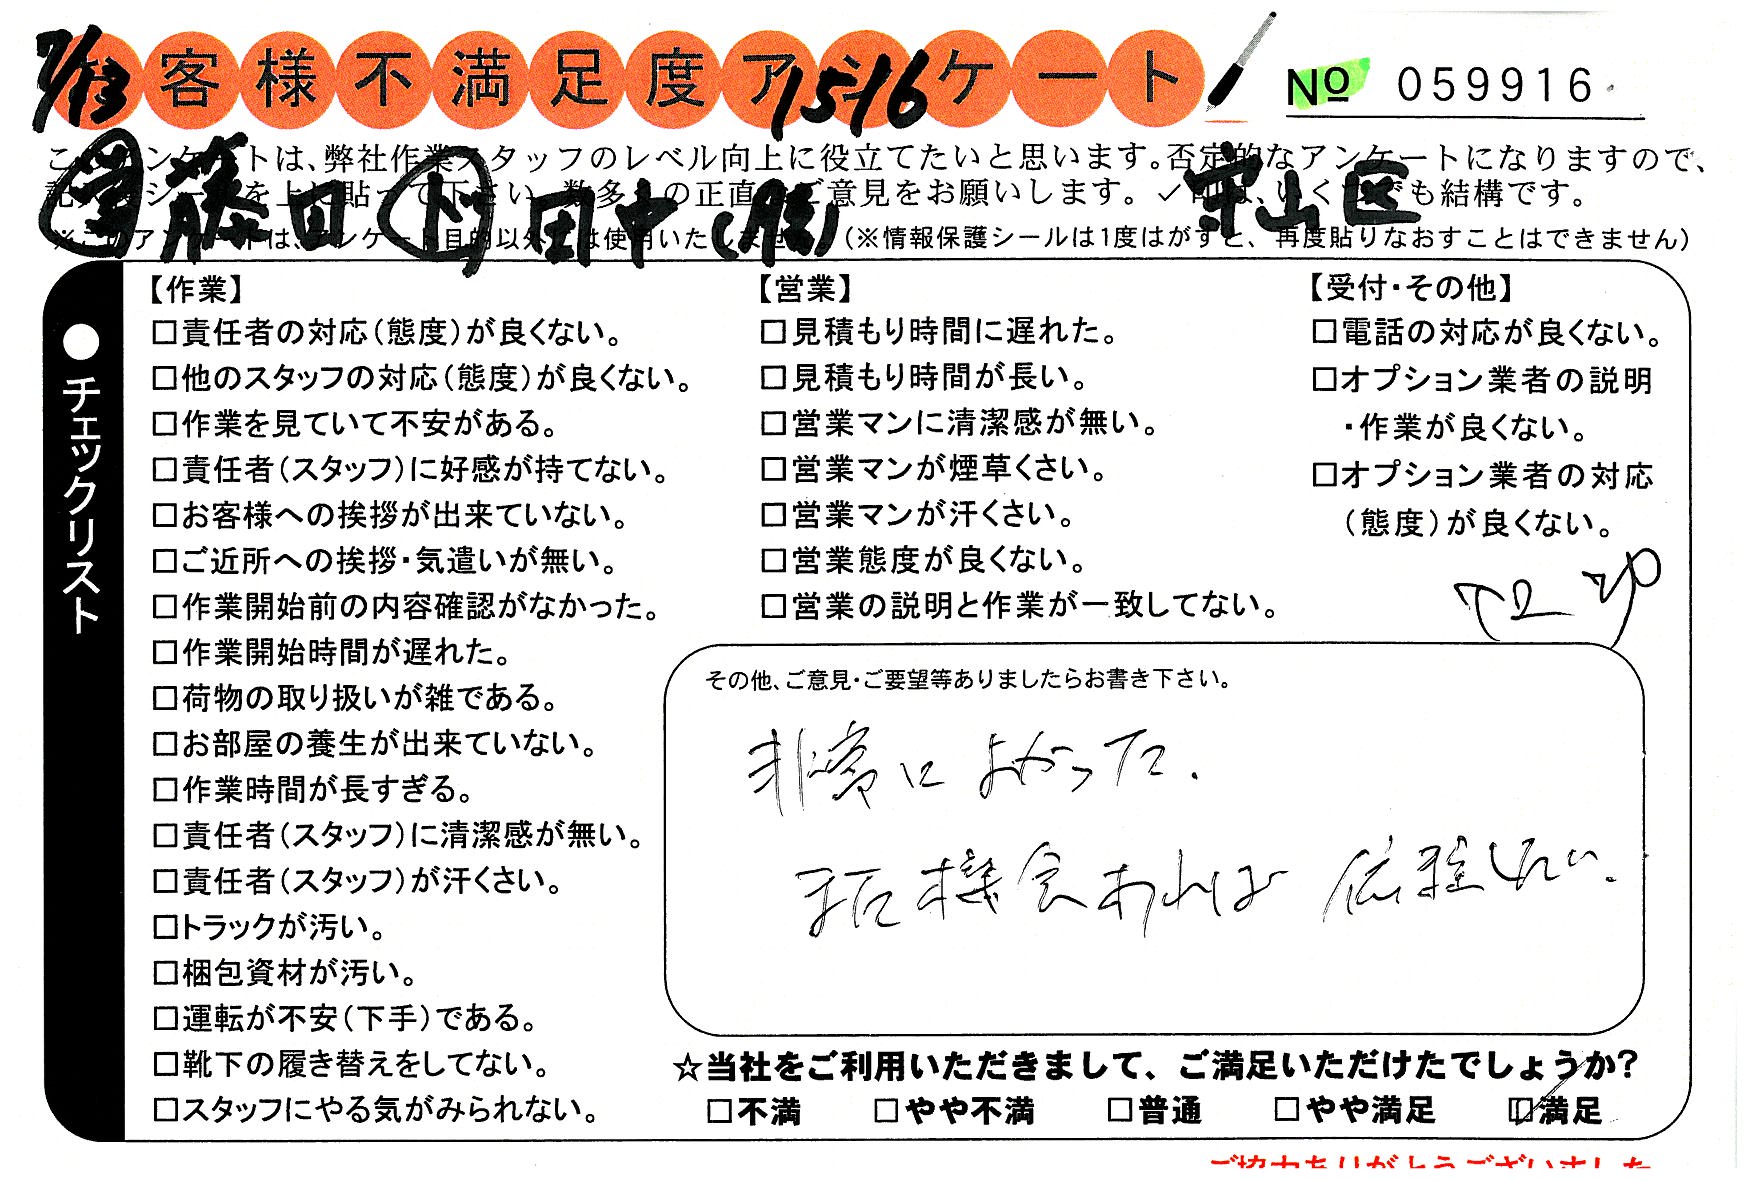 7/13 お客様不満足度アンケート 1516 No 059916
このアンケートは、弊社作業スタッフのレベル向上に役立てたいと思います。否定的なアンケートになりますので、
記入後シールを上に貼って下さい。数多くの正直なご意見をお願いします。✓印は、いくつでも結構です。
藤田 ト 田中 守山区
※このアンケートは、アンケート目的以外には使用いたしません。(※情報保護シールは1度はがすと、再度貼りなおすことはできません)
●チェックリスト
【作業】
□責任者の対応(態度)が良くない。
□他のスタッフの対応(態度)が良くない。
□作業を見ていて不安がある。
□責任者(スタッフ)に好感が持てない。
□お客様への挨拶が出来ていない。
□ご近所への挨拶・気遣いが無い。
□作業開始前の内容確認がなかった。
□作業開始時間が遅れた。
□荷物の取り扱いが雑である。
□お部屋の養生が出来ていない。
□作業時間が長すぎる。
□責任者(スタッフ)に清潔感が無い。
□責任者(スタッフ)が汗くさい。
□トラックが汚い。
□梱包資材が汚い。
□運転が不安(下手)である。
□靴下の履き替えをしてない。
□スタッフにやる気がみられない。
【営業】
□見積もり時間に遅れた。
□見積もり時間が長い。
□営業マンに清潔感が無い。
□営業マンが煙草くさい。
□営業マンが汗くさい。
□営業態度が良くない。
□営業の説明と作業が一致してない。
【受付・その他】
□電話の対応が良くない。
□オプション業者の説明
・作業が良くない。
□オプション業者の対応
(態度)が良くない。
その他、ご意見・ご要望等ありましたらお書き下さい。
非常によかった.
また機会あれば 依頼したい.
☆当社をご利用いただきまして、ご満足いただけたでしょうか?
□不満 □やや不満 □普通 □やや満足 ☑満足
ご協力ありがとうございました